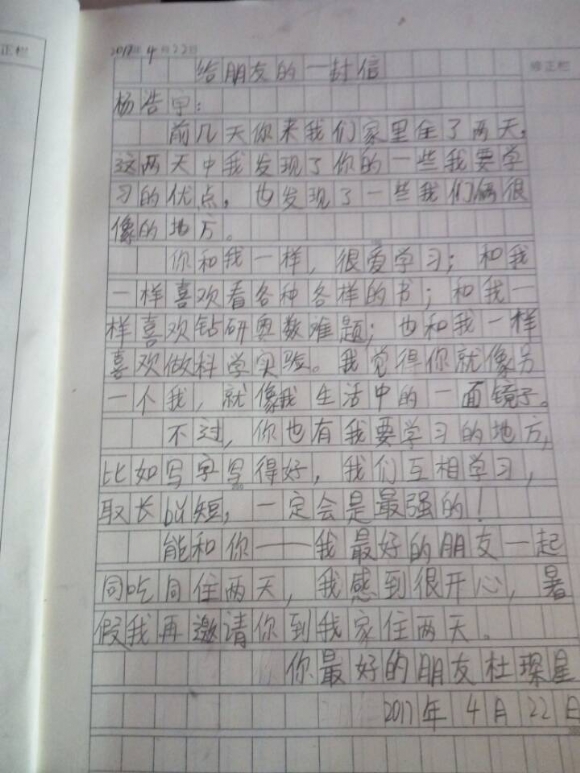 正栏
2017年4月22日
修正栏
给朋友的一封信
杨浩宇：
前几天你来我们家里住了两天，
这两天中我发现了你的一些我要学
习的优点，也发现了一些我们俩很
像的地方。
你和我一样，很爱学习；和我
一样喜欢看各种各样的书；和我一
样喜欢钻研奥数难题；也和我一样
喜欢做科学实验。我觉得你就像另
一个我，就像我生活中的一面镜子。
不过，你也有我要学习的地方，
比如写字写得好，我们互相学习，
取长bǔ短，一定会是最强的！
能和你——我最好的朋友一起
同吃同住两天，我感到很开心，暑
假我再邀请你到我家住两天。
你最好的朋友杜琛星
2017年4月22日